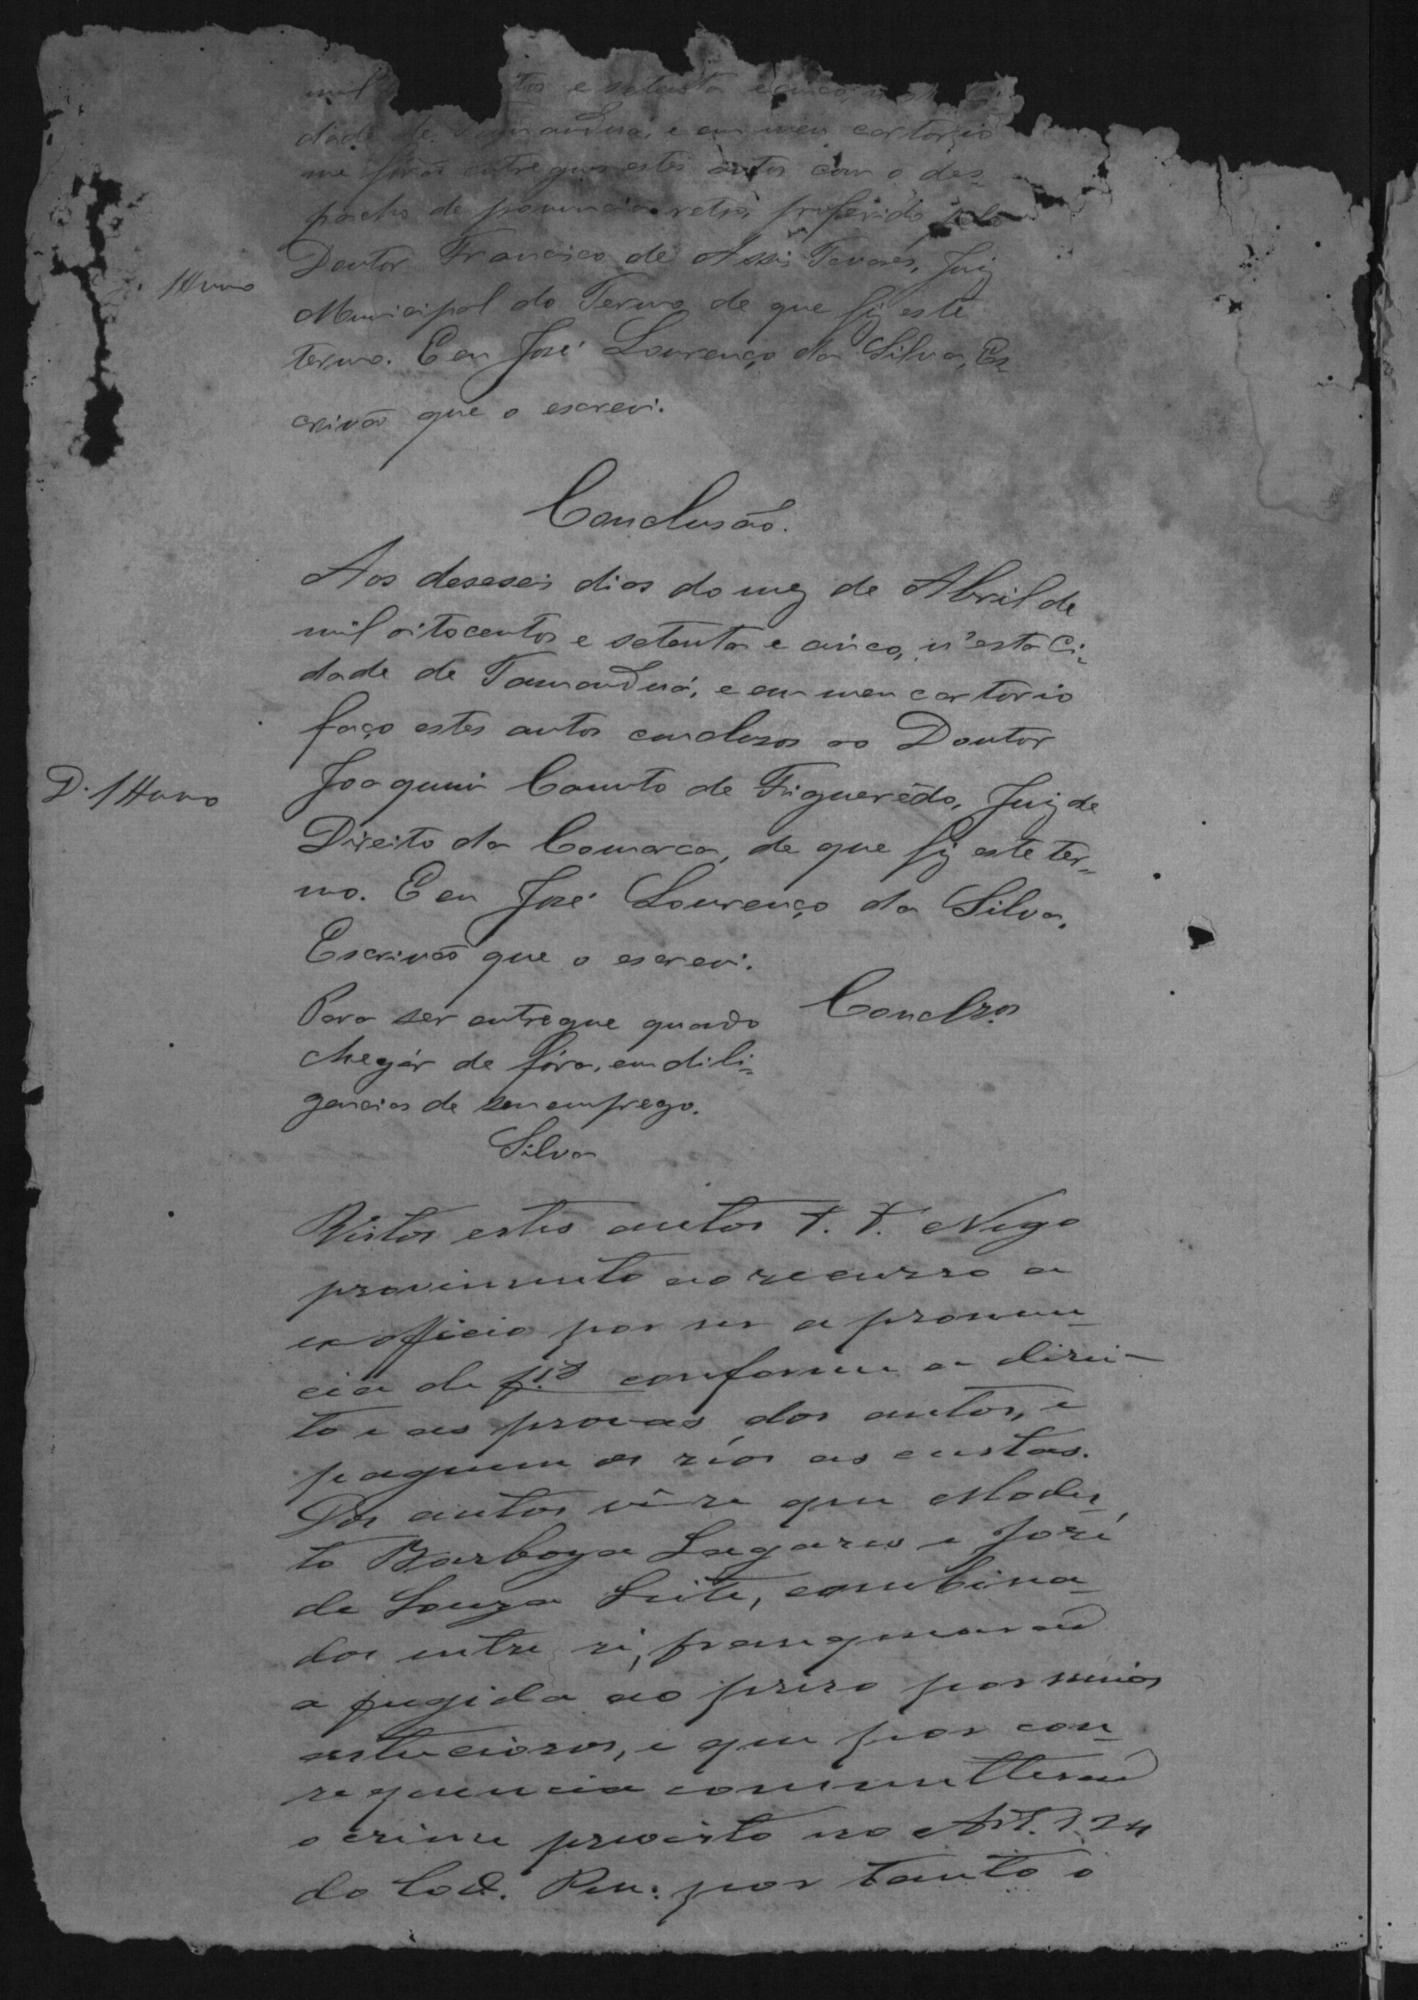 mil tos e setenta e cinco, n'esta Ci-
dade de Tamanduá, e em meu cartorio
me forão entregues estes autos com o des-
pacho de pronuncia retro, proferido pelo
Doutor Francisco de Assis Tavares, Juiz
Municipal do Termo de que fiz este
termo. E eu José Lourenço da Silva, Es-
crivão que o escrevi.
Conclusão.
Aos deseseis dias do mez de Abril de
mil oitocentos e setenta e cinco, n'esta Ci-
dade de Tamanduá, e em meu cartorio
faço estes autos conclusos ao Doutor
Joaquim Canuto de Figuerêdo, Juiz de
Direito da Comarca, de que fiz este ter-
mo. E eu José Lourenço da Silva,
Escrivão que o escrevi.
Conclsos
Para ser entregue quando
chegár de fóra, em dili-
gencias de seu emprego.
Silva
Vistos estes autos &. &. Nego
provimento ao recurso a
ex officio por ser a pronun-
cia de f. conforme a direi-
to e as provas dos autos, e
paguem os réos as custas.
Dos autos vê-se que Modes-
to Barboza Lagares e José
de Souza Leite, combina-
dos entre si, franquearão
a fugida ao prezo por meios
astuciosos, e que por con-
sequencia commetterão
o crime previsto no Art. 124
do Cod. Pen: por tanto o